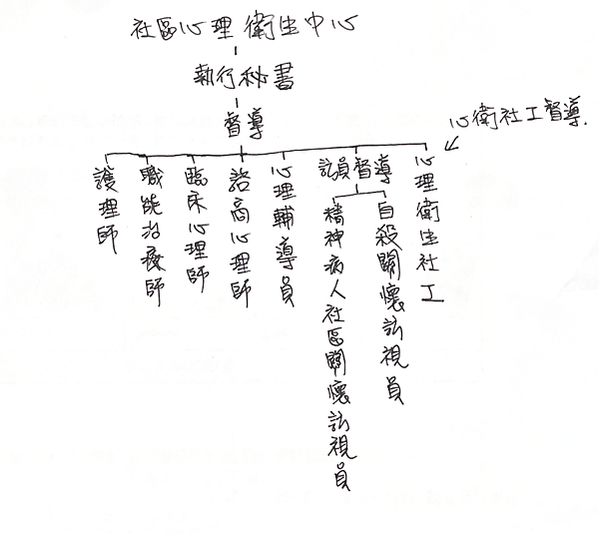 社區心理衛生中心
執行秘書
督導
心衛社工督導.
護理師
職能治療師
臨床心理師
諮商心理師
心理輔導員
訪員督導
精神病人社區關懷訪視員
自殺關懷訪視員
心理衛生社工